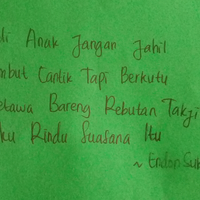 di Anak Jangan Jahil
mbut Cantik Tapi Berkutu
etawa Bareng Rebutan Takji
ku Rindu Suasana Itu
~